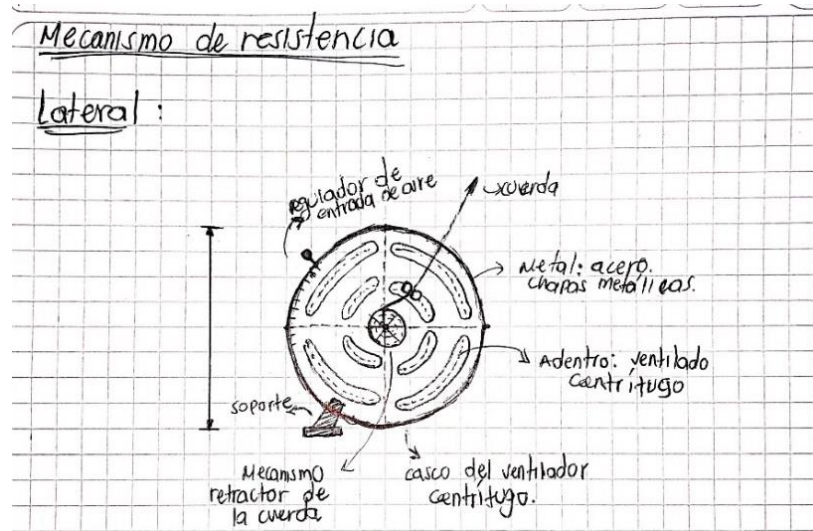 Mecanismo de resistencia
Lateral :
regulador de
entrada de aire
cuerda
Metal: acero.
chapas metálicas.
Adentro: ventilado
centrífugo
soporte
Mecanismo
retractor de
la cuerda
casco del ventilador
centrífugo.